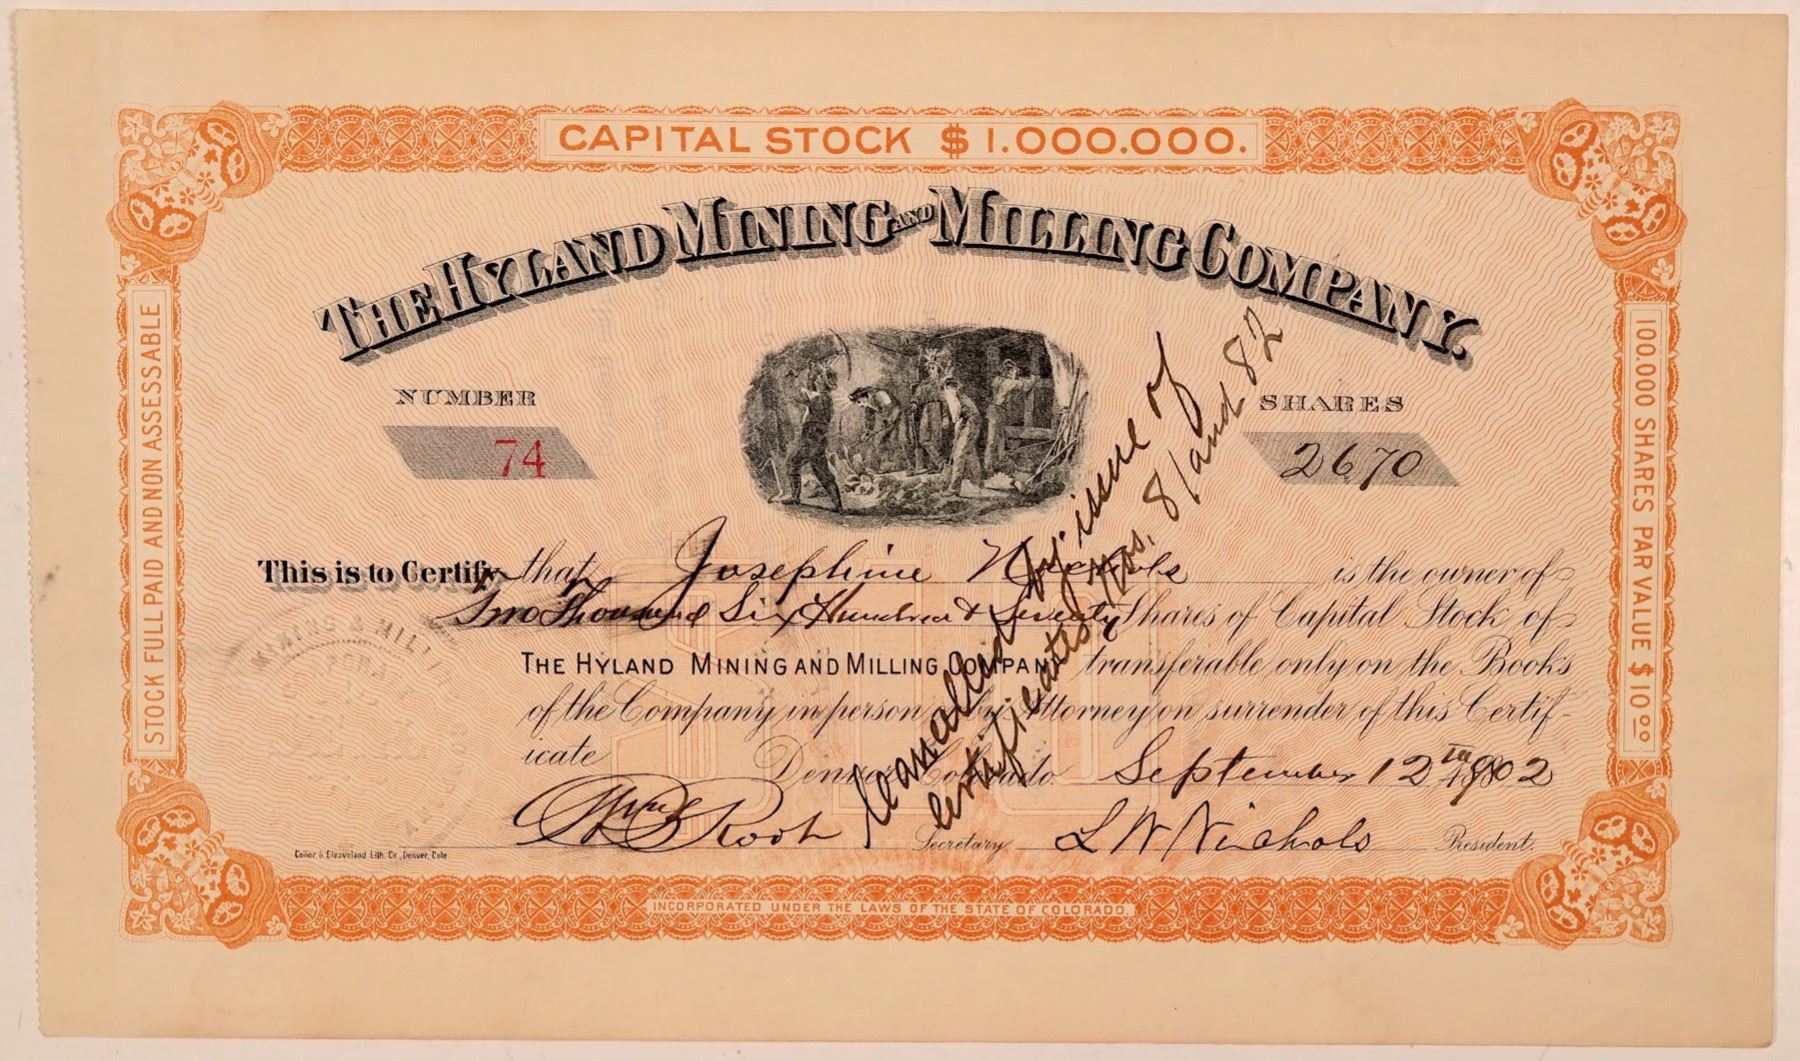 CAPITAL STOCK $1.000.000.
THE HYLAND MINING AND MILLING COMPANY.
STOCK FULL PAID AND NON ASSESSABLE
100.000 SHARES PAR VALUE $10.00
NUMBER
74
SHARES
2670
This is to Certify that Josephine Nichols is the owner of
Two Thousand Six Hundred & Seventy Shares of Capital Stock of
THE HYLAND MINING AND MILLING COMPANY transferable only on the Books
of the Company in person or by Attorney on surrender of this Certif-
icate Denver Colorado September 12th 1902
Wm B Root Secretary L W Nichols President.
Cancelled by issue of
certificates Nos. 81 and 82
MINING & MILLING
SEAL
Collier & Cleaveland Lith. Co., Denver, Colo.
INCORPORATED UNDER THE LAWS OF THE STATE OF COLORADO.